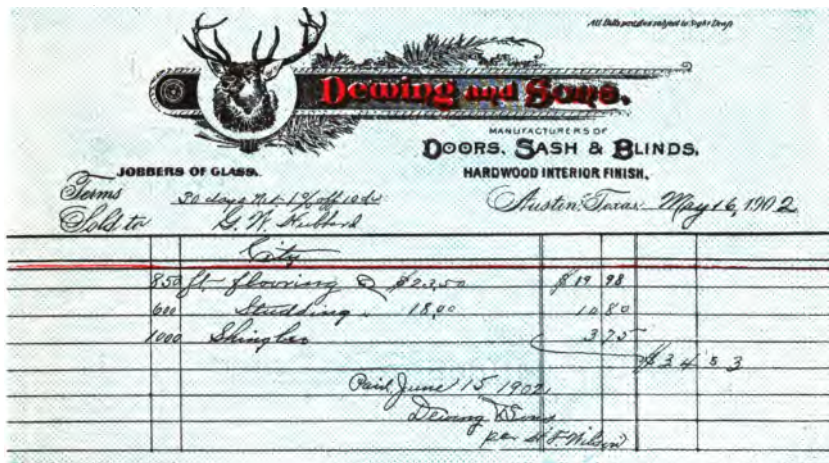 All Bills past due subject to Sight Draft
Dewing and Sons.
MANUFACTURERS OF
DOORS, SASH & BLINDS,
JOBBERS OF GLASS.
HARDWOOD INTERIOR FINISH,
Terms 30 days net 1% off 10 ds
Austin, Texas May 16, 1902
Sold to G. W. Hubbard
City
850 ft flooring @ $23.50 $19 98
600 Studding " 18.00 10 80
1000 Shingles 3 75
$34 53
Paid June 15 1902
Dewing & Sons
per F. Wilson